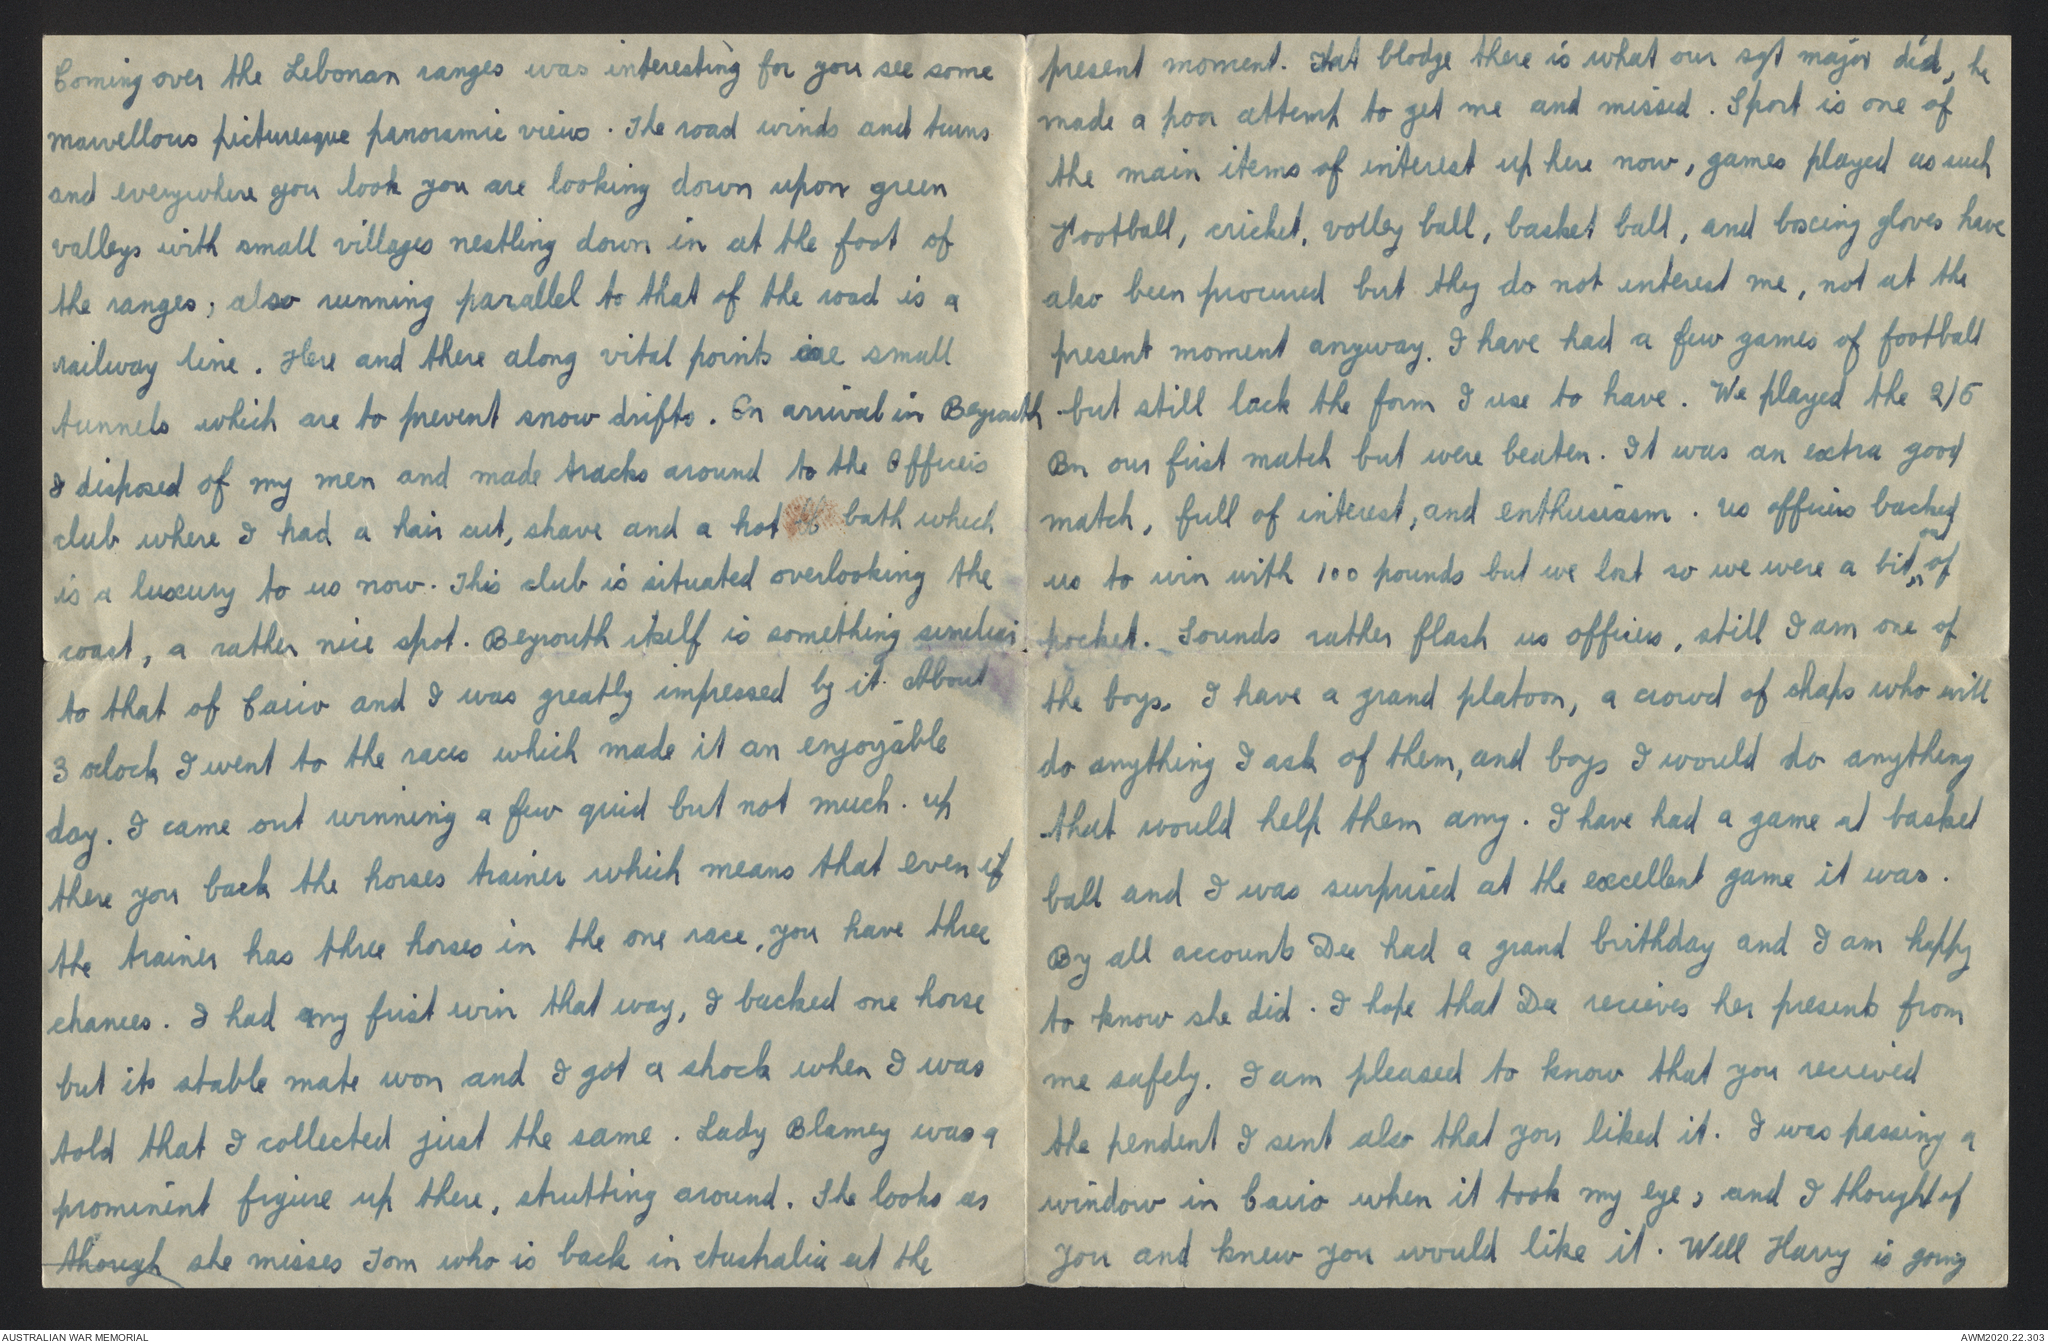 Coming over the Lebonan ranges was interesting for you see some
marvellous picturesque panoramic views. The road winds and turns
and everywhere you look you are looking down upon green
valleys with small villages nestling down in at the foot of
the ranges; also running parallel to that of the road is a
railway line. Here and there along vital points are small
tunnels which are to prevent snow drifts. On arrival in Beyrouth
I disposed of my men and made tracks around to the Officers
club where I had a hair cut, shave and a hot bath which
is a luxury to us now. This club is situated overlooking the
coast, a rather nice spot. Beyrouth itself is something similiar
to that of Cairo and I was greatly impressed by it. About
3 oclock I went to the races which made it an enjoyable
day. I came out winning a few quid but not much. Up
there you back the horses trainer which means that even if
the trainer has three horses in the one race, you have three
chances. I had my first win that way, I backed one horse
but its stable mate won and I got a shock when I was
told that I collected just the same. Lady Blamey was a
prominent figure up there, strutting around. She looks as
though she misses Tom who is back in Australia at the
present moment. That blodge there is what our sgt major did, he
made a poor attemp to get me and missed. Sport is one of
the main items of interest up here now, games played as such
Football, cricket, volley ball, basket ball, and boxing gloves have
also been procured but they do not interest me, not at the
present moment anyway. I have had a few games of football
but still lack the form I use to have. We played the 2/5
Bn our first match but were beaten. It was an extra good
match, full of interest, and enthusiasm. Us officers backed
us to win with 100 pounds but we lost so we were a bit out of
pocket. Sounds rather flash us officers, still I am one of
the boys. I have a grand platoon, a crowd of chaps who will
do anything I ask of them, and boys I would do anything
that would help them any. I have had a game at basket
ball and I was surprised at the excellent game it was.
By all accounts Dee had a grand birthday and I am happy
to know she did. I hope that Dee recieves her presents from
me safely. I am pleased to know that you recieved
the pendent I sent also that you liked it. I was passing a
window in Cairo when it took my eye, and I thought of
you and knew you would like it. Well Harry is going
AUSTRALIAN WAR MEMORIAL
AWM2020.22.303